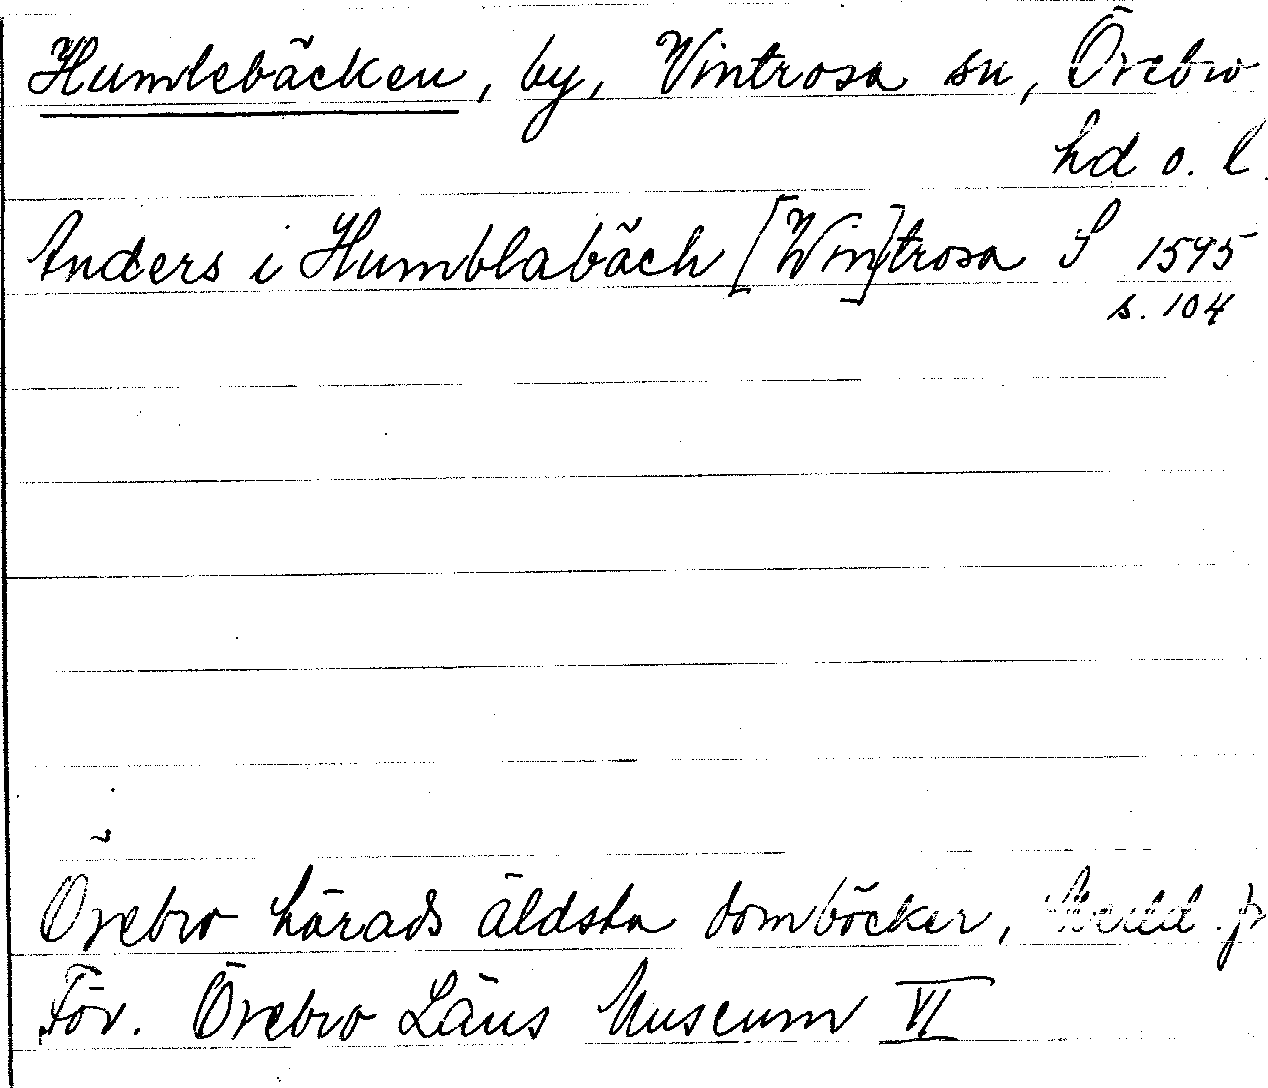 Humlebäcken, by, Vintrosa sn, Örebro
hd o. l.
Anders i Humblabäck [Win]trosa S 1595
s. 104
Örebro härads äldsta domböcker, Medd. fr
För. Örebro Läns Museum VI